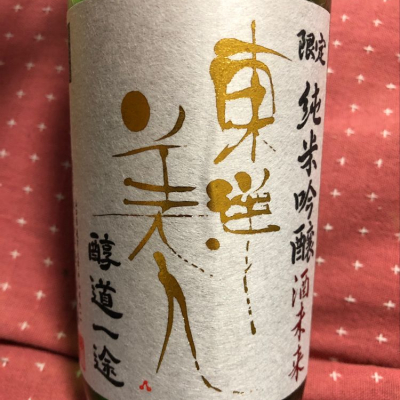 限定 純米吟醸 酒未来
東洋
美人
醇道一途